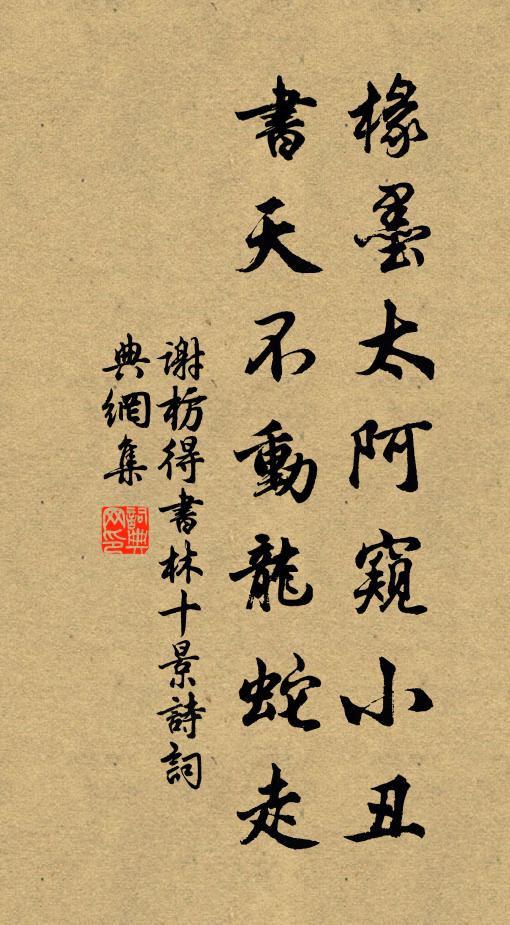 椽墨太阿窺小丑
書天不動龍蛇走
謝枋得書林十景詩詞
典網集
詞典網印